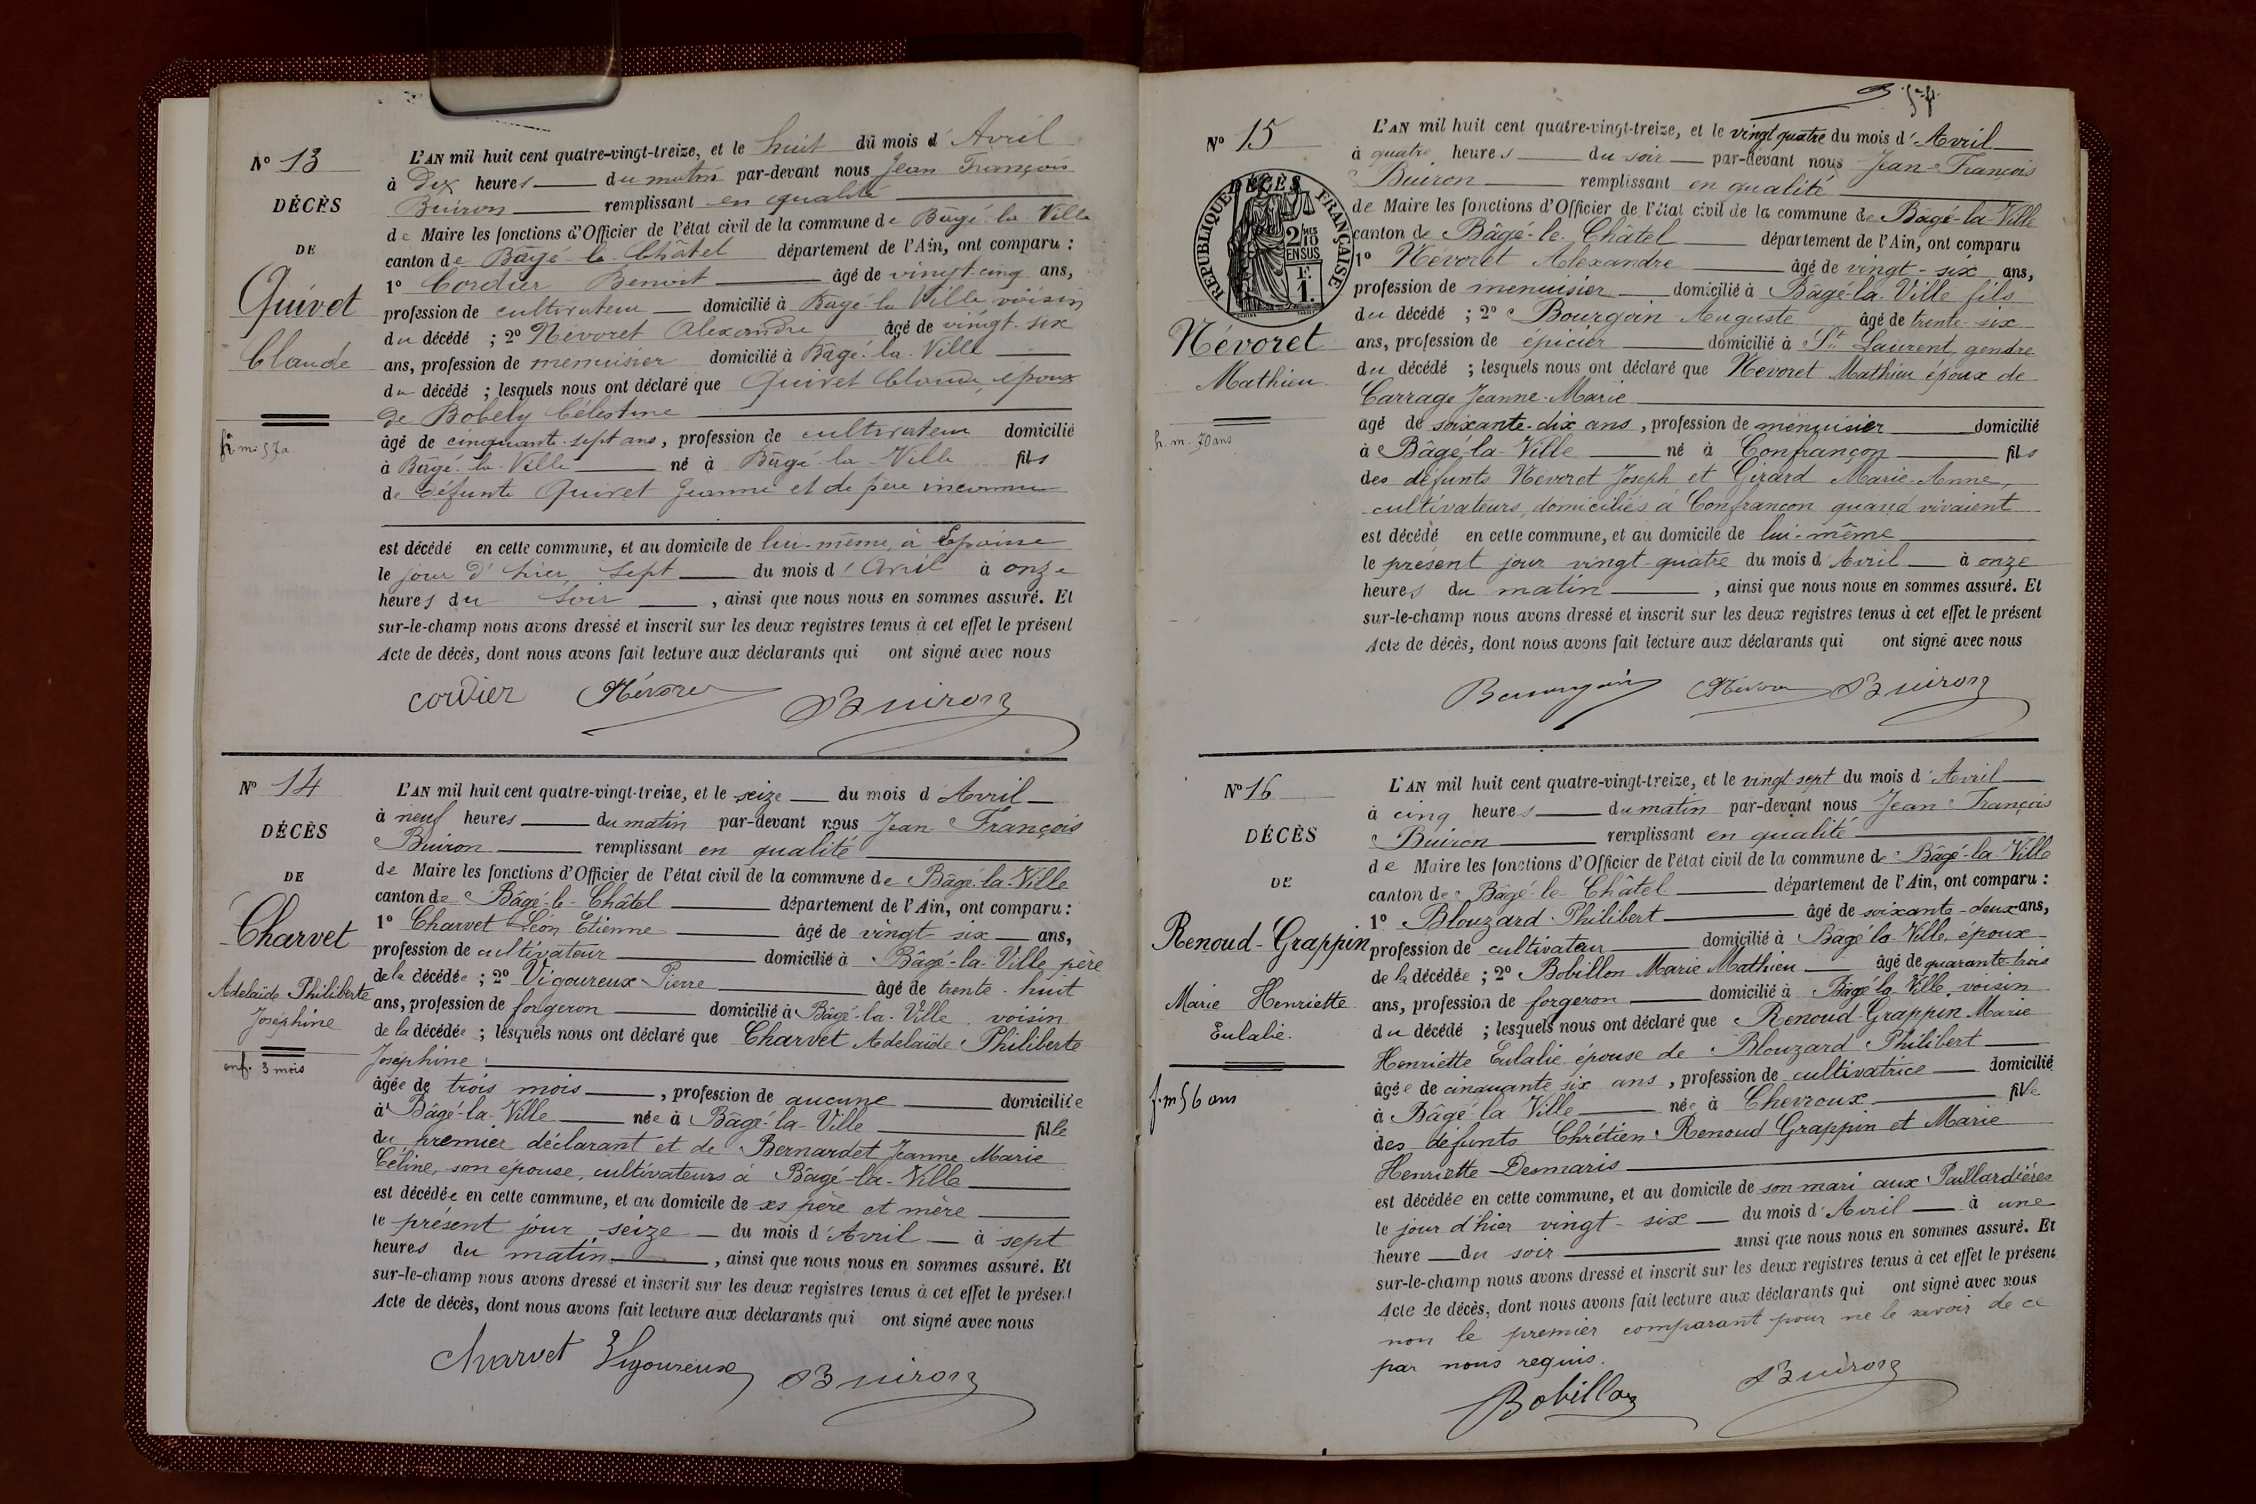 N° 13
DÉCÈS
DE
Quivet
Claude
h. m. 57 a
L'AN mil huit cent quatre-vingt-treize, et le huit du mois d'Avril
à Dix heures du matin par-devant nous Jean François
Buiron remplissant en qualité
de Maire les fonctions d'Officier de l'état civil de la commune de Bâgé-la-Ville
canton de Bâgé-le-Châtel département de l'Ain, ont comparu :
1° Cordier Benoit âgé de vingt-cinq ans,
profession de cultivateur domicilié à Bâgé-la-Ville voisin
du décédé ; 2° Névoret Alexandre âgé de vingt-six
ans, profession de menuisier domicilié à Bâgé-la-Ville
du décédé ; lesquels nous ont déclaré que Quivet Claude, époux
de Bobely Célestine
âgé de cinquante-sept ans, profession de cultivateur domicilié
à Bâgé-la-Ville né à Bâgé-la-Ville fils
de défunte Quivet Jeanne et de père inconnu
est décédé en cette commune, et au domicile de lui-même, à Epaisse
le jour d'hier, sept du mois d'Avril à onze
heures du soir, ainsi que nous nous en sommes assuré. Et
sur-le-champ nous avons dressé et inscrit sur les deux registres tenus à cet effet le présent
Acte de décès, dont nous avons fait lecture aux déclarants qui ont signé avec nous
cordier Névoret Buiron
N° 14
DÉCÈS
DE
Charvet
Adelaïde Philiberte
Joséphine
enf. 3 mois
L'AN mil huit cent quatre-vingt-treize, et le seize du mois d'Avril
à neuf heures du matin par-devant nous Jean François
Buiron remplissant en qualité
de Maire les fonctions d'Officier de l'état civil de la commune de Bâgé-la-Ville
canton de Bâgé-le-Châtel département de l'Ain, ont comparu :
1° Charvet Léon Etienne âgé de vingt-six ans,
profession de cultivateur domicilié à Bâgé-la-Ville père
de la décédée ; 2° Vigoureux Pierre âgé de trente-huit
ans, profession de forgeron domicilié à Bâgé-la-Ville, voisin
de la décédée ; lesquels nous ont déclaré que Charvet Adelaïde Philiberte
Joséphine
âgée de trois mois, profession de aucune domiciliée
à Bâgé-la-Ville née à Bâgé-la-Ville fille
du premier déclarant et de Bernardet Jeanne Marie
Céline, son épouse, cultivateurs à Bâgé-la-Ville
est décédée en cette commune, et au domicile de ses père et mère
le présent jour seize du mois d'Avril à sept
heures du matin, ainsi que nous nous en sommes assuré. Et
sur-le-champ nous avons dressé et inscrit sur les deux registres tenus à cet effet le présent
Acte de décès, dont nous avons fait lecture aux déclarants qui ont signé avec nous
Charvet Vigoureux Buiron
N° 15
DÉCÈS
RÉPUBLIQUE FRANÇAISE
2/10 EN SUS
1 F.
Névoret
Mathieu
h. m. 70 ans
L'AN mil huit cent quatre-vingt-treize, et le vingt quatre du mois d'Avril
à quatre heures du soir par-devant nous Jean-François
Buiron remplissant en qualité
de Maire les fonctions d'Officier de l'état civil de la commune de Bâgé-la-Ville
canton de Bâgé-le-Châtel département de l'Ain, ont comparu
1° Névoret Alexandre âgé de vingt-six ans,
profession de menuisier domicilié à Bâgé-la-Ville fils
du décédé ; 2° Bourgoin Auguste âgé de trente-six
ans, profession de épicier domicilié à St Laurent, gendre
du décédé ; lesquels nous ont déclaré que Névoret Mathieu époux de
Carrage Jeanne-Marie
agé de soixante-dix ans, profession de menuisier domicilié
à Bâgé-la-Ville né à Confrançon fils
des défunts Névoret Joseph et Girard Marie-Anne,
cultivateurs, domiciliés à Confrancon quand vivaient
est décédé en cette commune, et au domicile de lui-même
le présent jour vingt-quatre du mois d'Avril à onze
heures du matin, ainsi que nous nous en sommes assuré. Et
sur-le-champ nous avons dressé et inscrit sur les deux registres tenus à cet effet le présent
Acte de décès, dont nous avons fait lecture aux déclarants qui ont signé avec nous
Bourgoin Névoret Buiron
N° 16
DÉCÈS
DE
Renoud-Grappin
Marie Henriette
Eulalie.
f. m 56 ans
L'AN mil huit cent quatre-vingt-treize, et le vingt-sept du mois d'Avril
à cinq heures du matin par-devant nous Jean François
Buiron remplissant en qualité
de Maire les fonctions d'Officier de l'état civil de la commune de Bâgé-la-Ville
canton de Bâgé-le-Châtel département de l'Ain, ont comparu :
1° Blouzard Philibert âgé de soixante-deux ans,
profession de cultivateur domicilié à Bâgé-la-Ville, époux
de la décédée ; 2° Bobillon Marie Mathieu âgé de quarante-trois
ans, profession de forgeron domicilié à Bâgé-la-Ville, voisin
du décédé ; lesquels nous ont déclaré que Renoud-Grappin Marie
Henriette Eulalie épouse de Blouzard Philibert
âgée de cinquante six ans, profession de cultivatrice domicilié
à Bâgé-la-Ville née à Chevroux fille
des défunts Chrétien Renoud Grappin et Marie
Henriette Desmaris
est décédée en cette commune, et au domicile de son mari aux Paillardières
le jour d'hier vingt-six du mois d'Avril à une
heure du soir ainsi que nous nous en sommes assuré. Et
sur-le-champ nous avons dressé et inscrit sur les deux registres tenus à cet effet le présent
Acte de décès, dont nous avons fait lecture aux déclarants qui ont signé avec nous
non le premier comparant pour ne le savoir de ce
par nous requis.
Bobillon Buiron